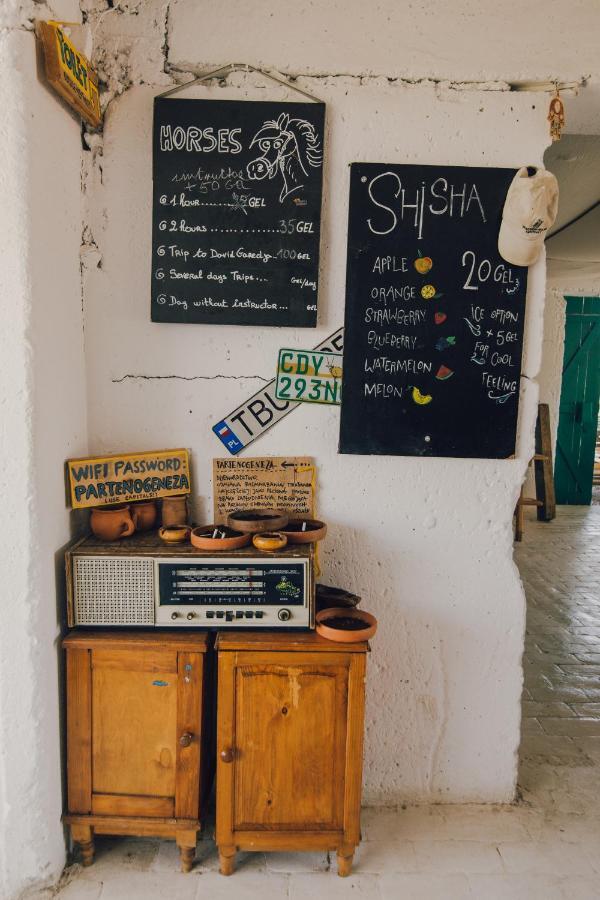 TOILET
HORSES
instructor
+50 GEL
1 hour........ GEL
2 hours ............. 35 GEL
Trip to David Garedja..100 GEL
Several days Trips... GEL/day
Day without instructor... GEL
SHiSHA
20 GEL
APPLE
ORANGE
STRAWBERRY
BLUEBERRY
WATERMELON
MELON
iCE OPTION
+ 5 GEL
FOR COOL
FEELING
CDY
293N
PL TBU
WIFI PASSWORD:
PARTENOGENEZA
(USE CAPITALS!)
PARTENOGENEZA